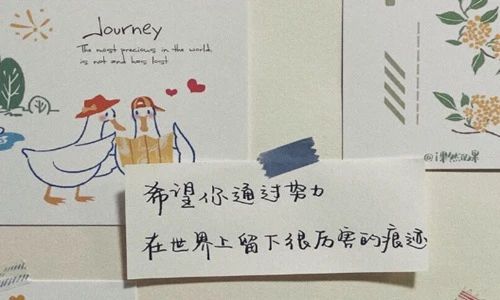 Journey
The most precious in the world,
is not and has lost
希望你通过努力
在世界上留下很厉害的痕迹